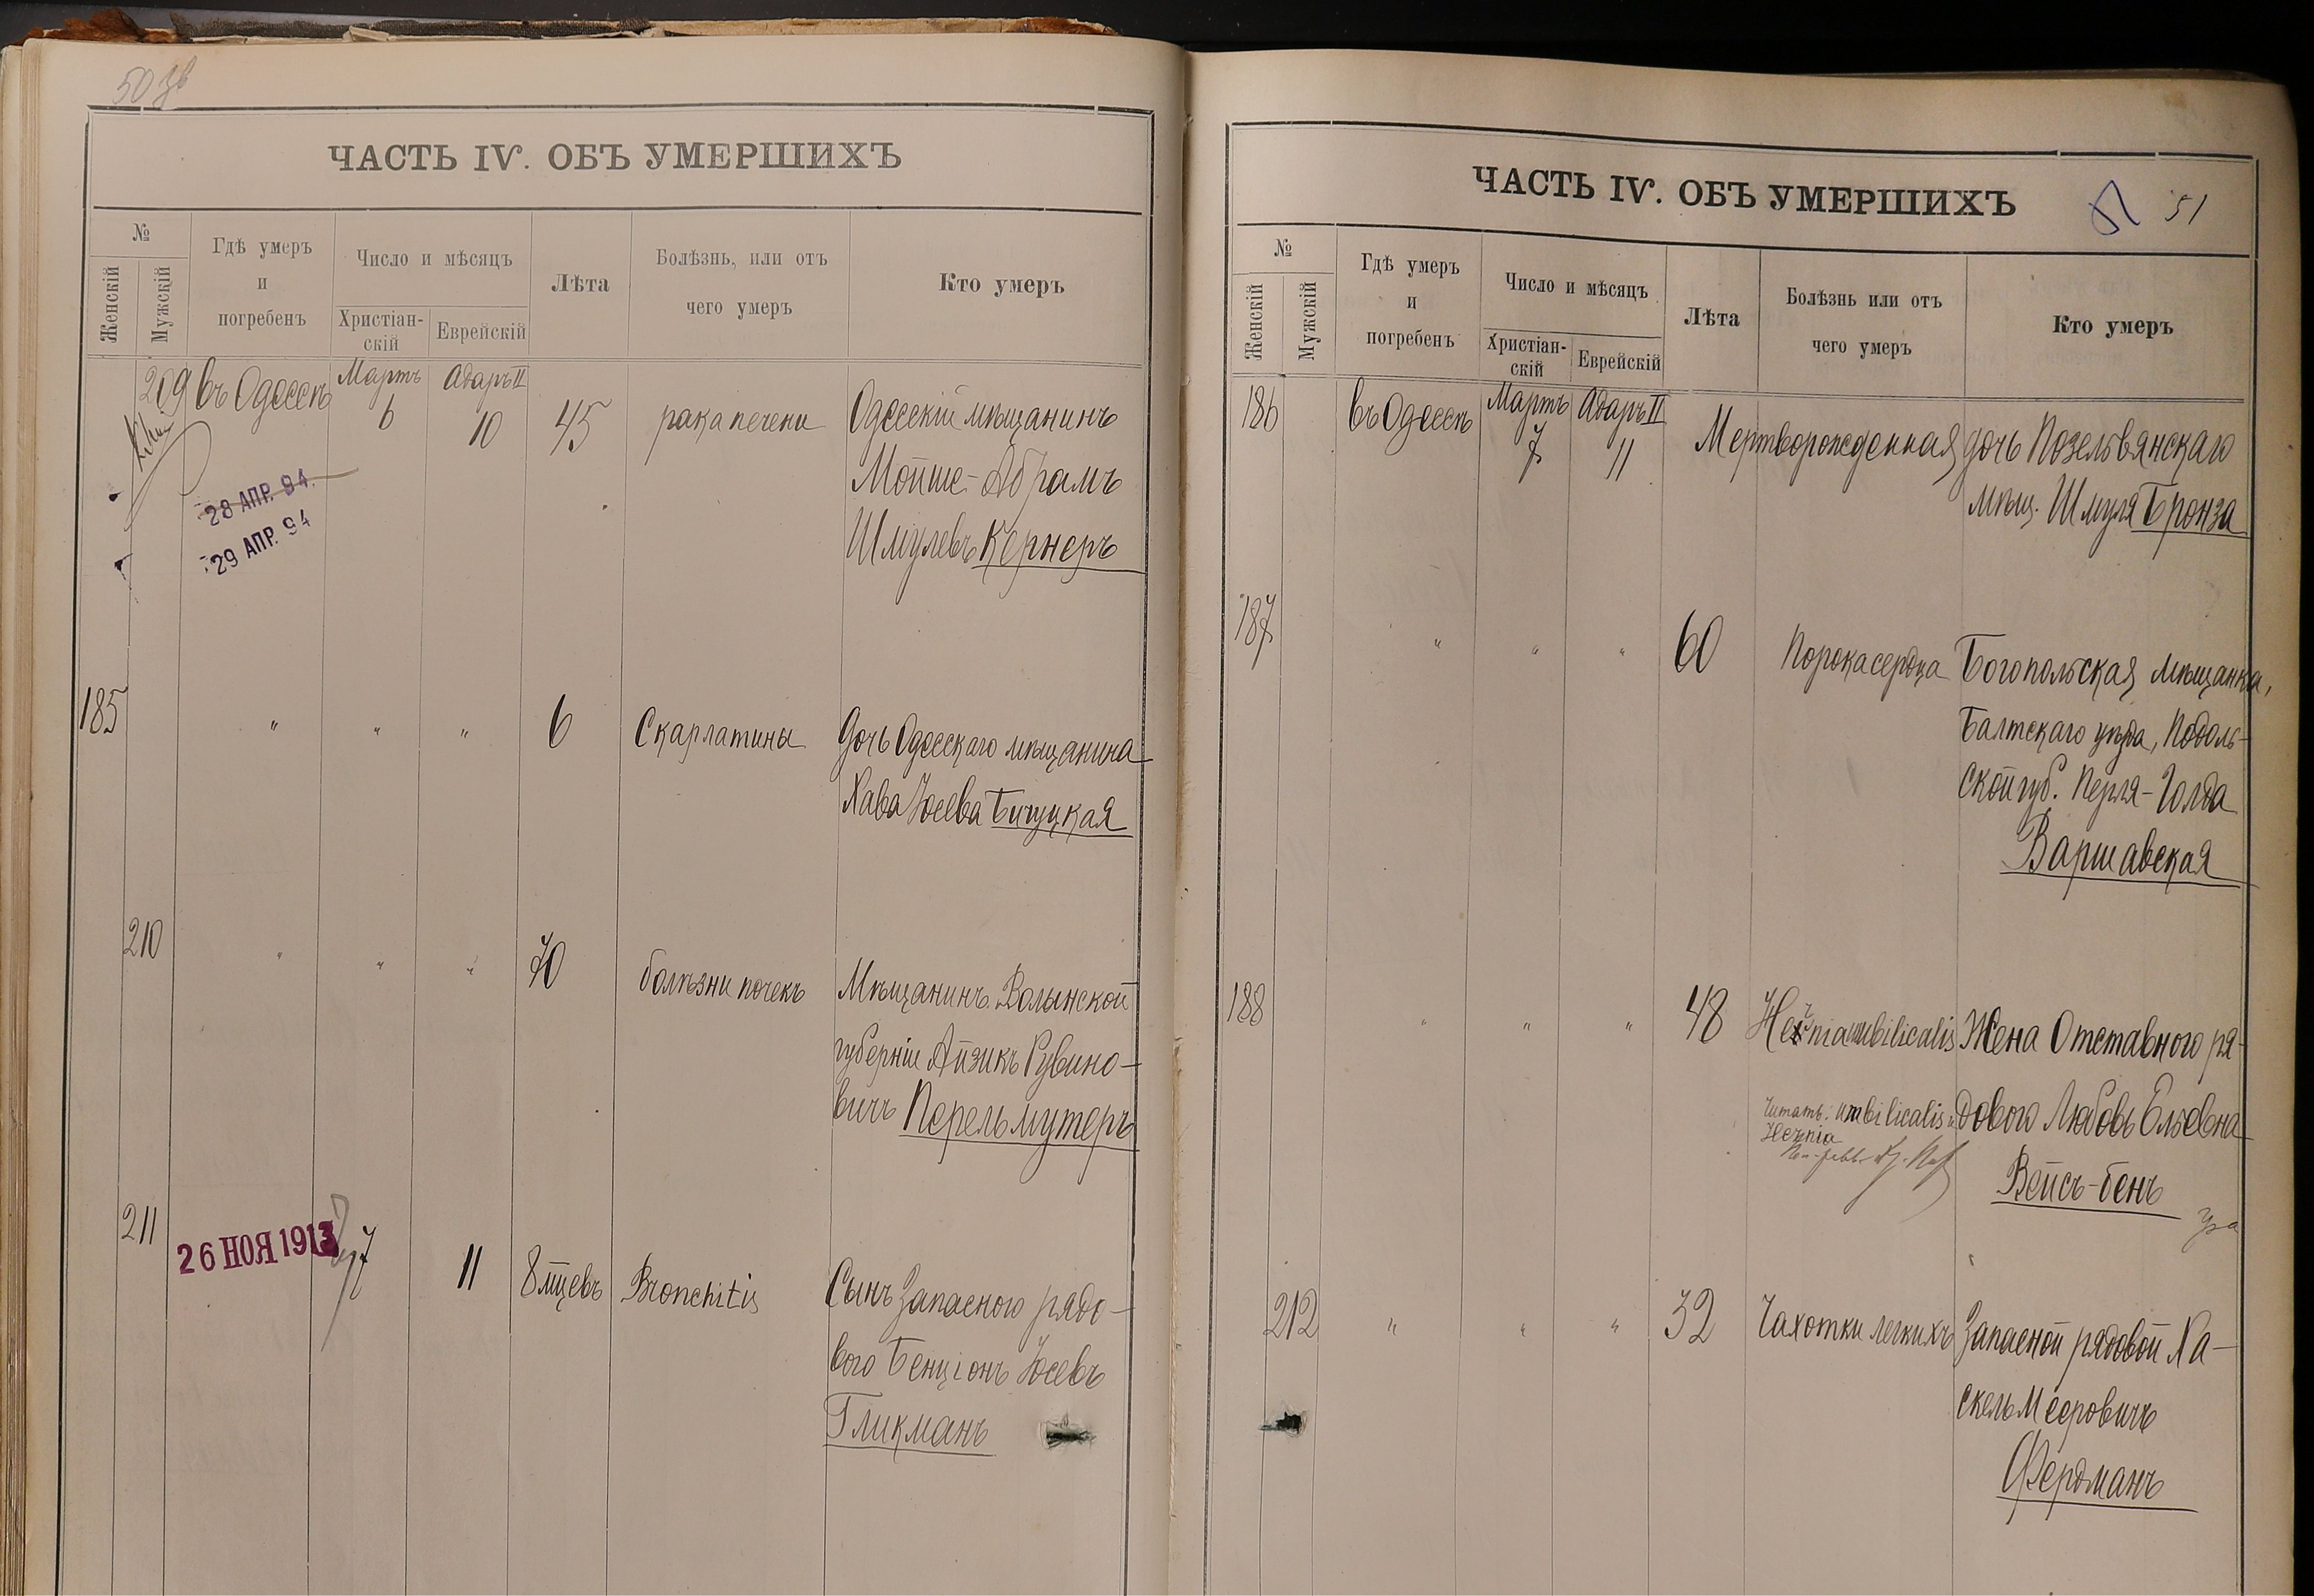 50 зв
ЧАСТЬ IV. ОБЪ УМЕРШИХЪ
№
Женскій
Мужскій
Гдѣ умеръ
и
погребенъ
Число и мѣсяцъ
Христіан-
скій
Еврейскій
Лѣта
Болѣзнь, или отъ
чего умеръ
Кто умеръ
209 въ Одессѣ Мартъ 6 Адаръ II 10 45 рака печени Одесскій мѣщанинъ
Мойше-Абрамъ
Шмулевъ Кернеръ
28 АПР. 94.
29 АПР. 94
185 " " " 6 Скарлатины Дочь Одесскаго мѣщанина
Хава Юсева Бичуцкая
210 " " " 70 болѣзни почекъ Мѣщанинъ Волынской
губерніи Айзикъ Рувино-
вичъ Перельмутеръ
211 7 11 8 мцевъ Bronchitis Сынъ Запаснаго рядо-
26 НОЯ 1913
вого Бенціонъ Юсевъ
Гликманъ
ЧАСТЬ IV. ОБЪ УМЕРШИХЪ
51 51
№
Женскій
Мужскій
Гдѣ умеръ
и
погребенъ
Число и мѣсяцъ
Христіан-
скій
Еврейскій
Лѣта
Болѣзнь или отъ
чего умеръ
Кто умеръ
186 въ Одессѣ Мартъ 7 Адаръ II 11 Мертворожденная дочь Позельвянскаго
мѣщ. Шмуля Бронза
187 " " " 60 Порока сердца Богопольская мѣщанка,
Балтскаго уѣзда, Подоль-
ской губ. Перля-Голда
Варшавская
188 " " " 48 Hernia umbilicalis Жена Отставного ря-
Читать: umbilicalis дового Любовь Ельевна
Hernia
Вейсъ-бенъ
212 " " " 32 Чахотки легкихъ Запасной рядовой Ха-
скель Мееровичъ
Фердманъ